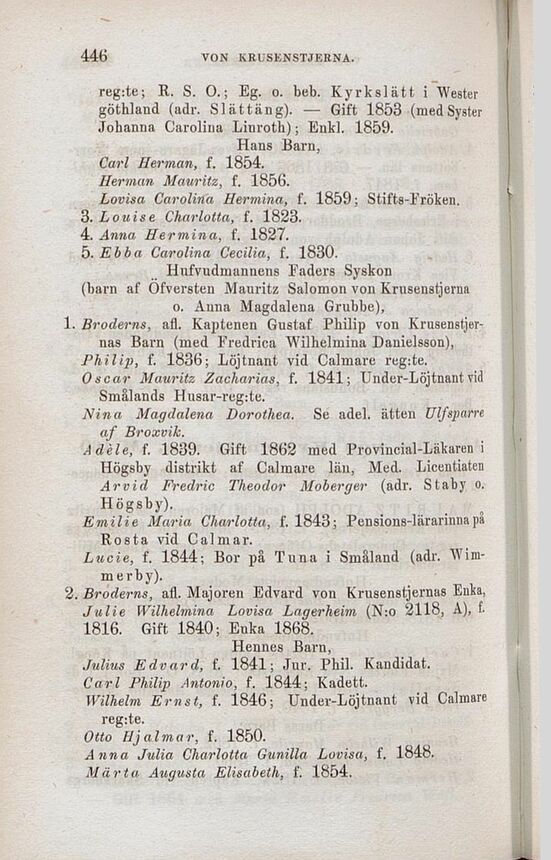 446 VON KRUSENSTJERNA.
reg:te; R. S. O.; Eg. o. beb. Kyrkslätt i Wester
göthland (adr. Slättäng). — Gift 1853 (med Syster
Johanna Carolina Linroth); Enkl. 1859.
Hans Barn,
Carl Herman, f. 1854.
Herman Mauritz, f. 1856.
Lovisa Carolina Hermina, f. 1859; Stifts-Fröken.
3. Louise Charlotta, f. 1823.
4. Anna Hermina, f. 1827.
5. Ebba Carolina Cecilia, f. 1830.
Hufvudmannens Faders Syskon
(barn af Öfversten Mauritz Salomon von Krusenstjerna
o. Anna Magdalena Grubbe),
1. Broderns, afl. Kaptenen Gustaf Philip von Krusenstjer-
nas Barn (med Fredrica Wilhelmina Danielsson),
Philip, f. 1836; Löjtnant vid Calmare reg:te.
Oscar Mauritz Zacharias, f. 1841; Under-Löjtnant vid
Smålands Husar-reg:te.
Nina Magdalena Dorothea. Se adel. ätten Ulfsparre
af Broxvik.
Adèle, f. 1839. Gift 1862 med Provincial-Läkaren i
Högsby distrikt af Calmare län, Med. Licentiaten
Arvid Fredric Theodor Moberger (adr. Staby o.
Högsby).
Emilie Maria Charlotta, f. 1843; Pensions-lärarinna på
Rosta vid Calmar.
Lucie, f. 1844; Bor på Tuna i Småland (adr. Wim-
merby).
2. Broderns, afl. Majoren Edvard von Krusenstjernas Enka,
Julie Wilhelmina Lovisa Lagerheim (N:o 2118, A), f.
1816. Gift 1840; Enka 1868.
Hennes Barn,
Julius Edvard, f. 1841; Jur. Phil. Kandidat.
Carl Philip Antonio, f. 1844; Kadett.
Wilhelm Ernst, f. 1846; Under-Löjtnant vid Calmare
reg:te.
Otto Hjalmar, f. 1850.
Anna Julia Charlotta Gunilla Lovisa, f. 1848.
Märta Augusta Elisabeth, f. 1854.